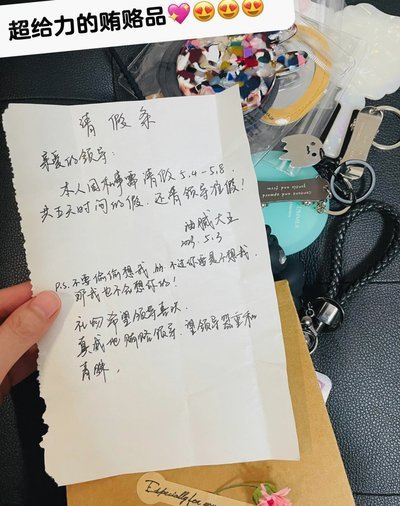 超给力的贿赂品💖😍😍😍
请假条
亲爱的领导：
本人因私事需请假5.4-5.8.
共五天时间的假，还请领导准假！
油腻大立
2023.5.3
P.S. 不要偷偷想我 哟 不过你要是不想我.
那我也不会想你的！
礼物希望领导喜欢.
真诚地贿赂领导，望领导器重和
青睐.
Especially for you